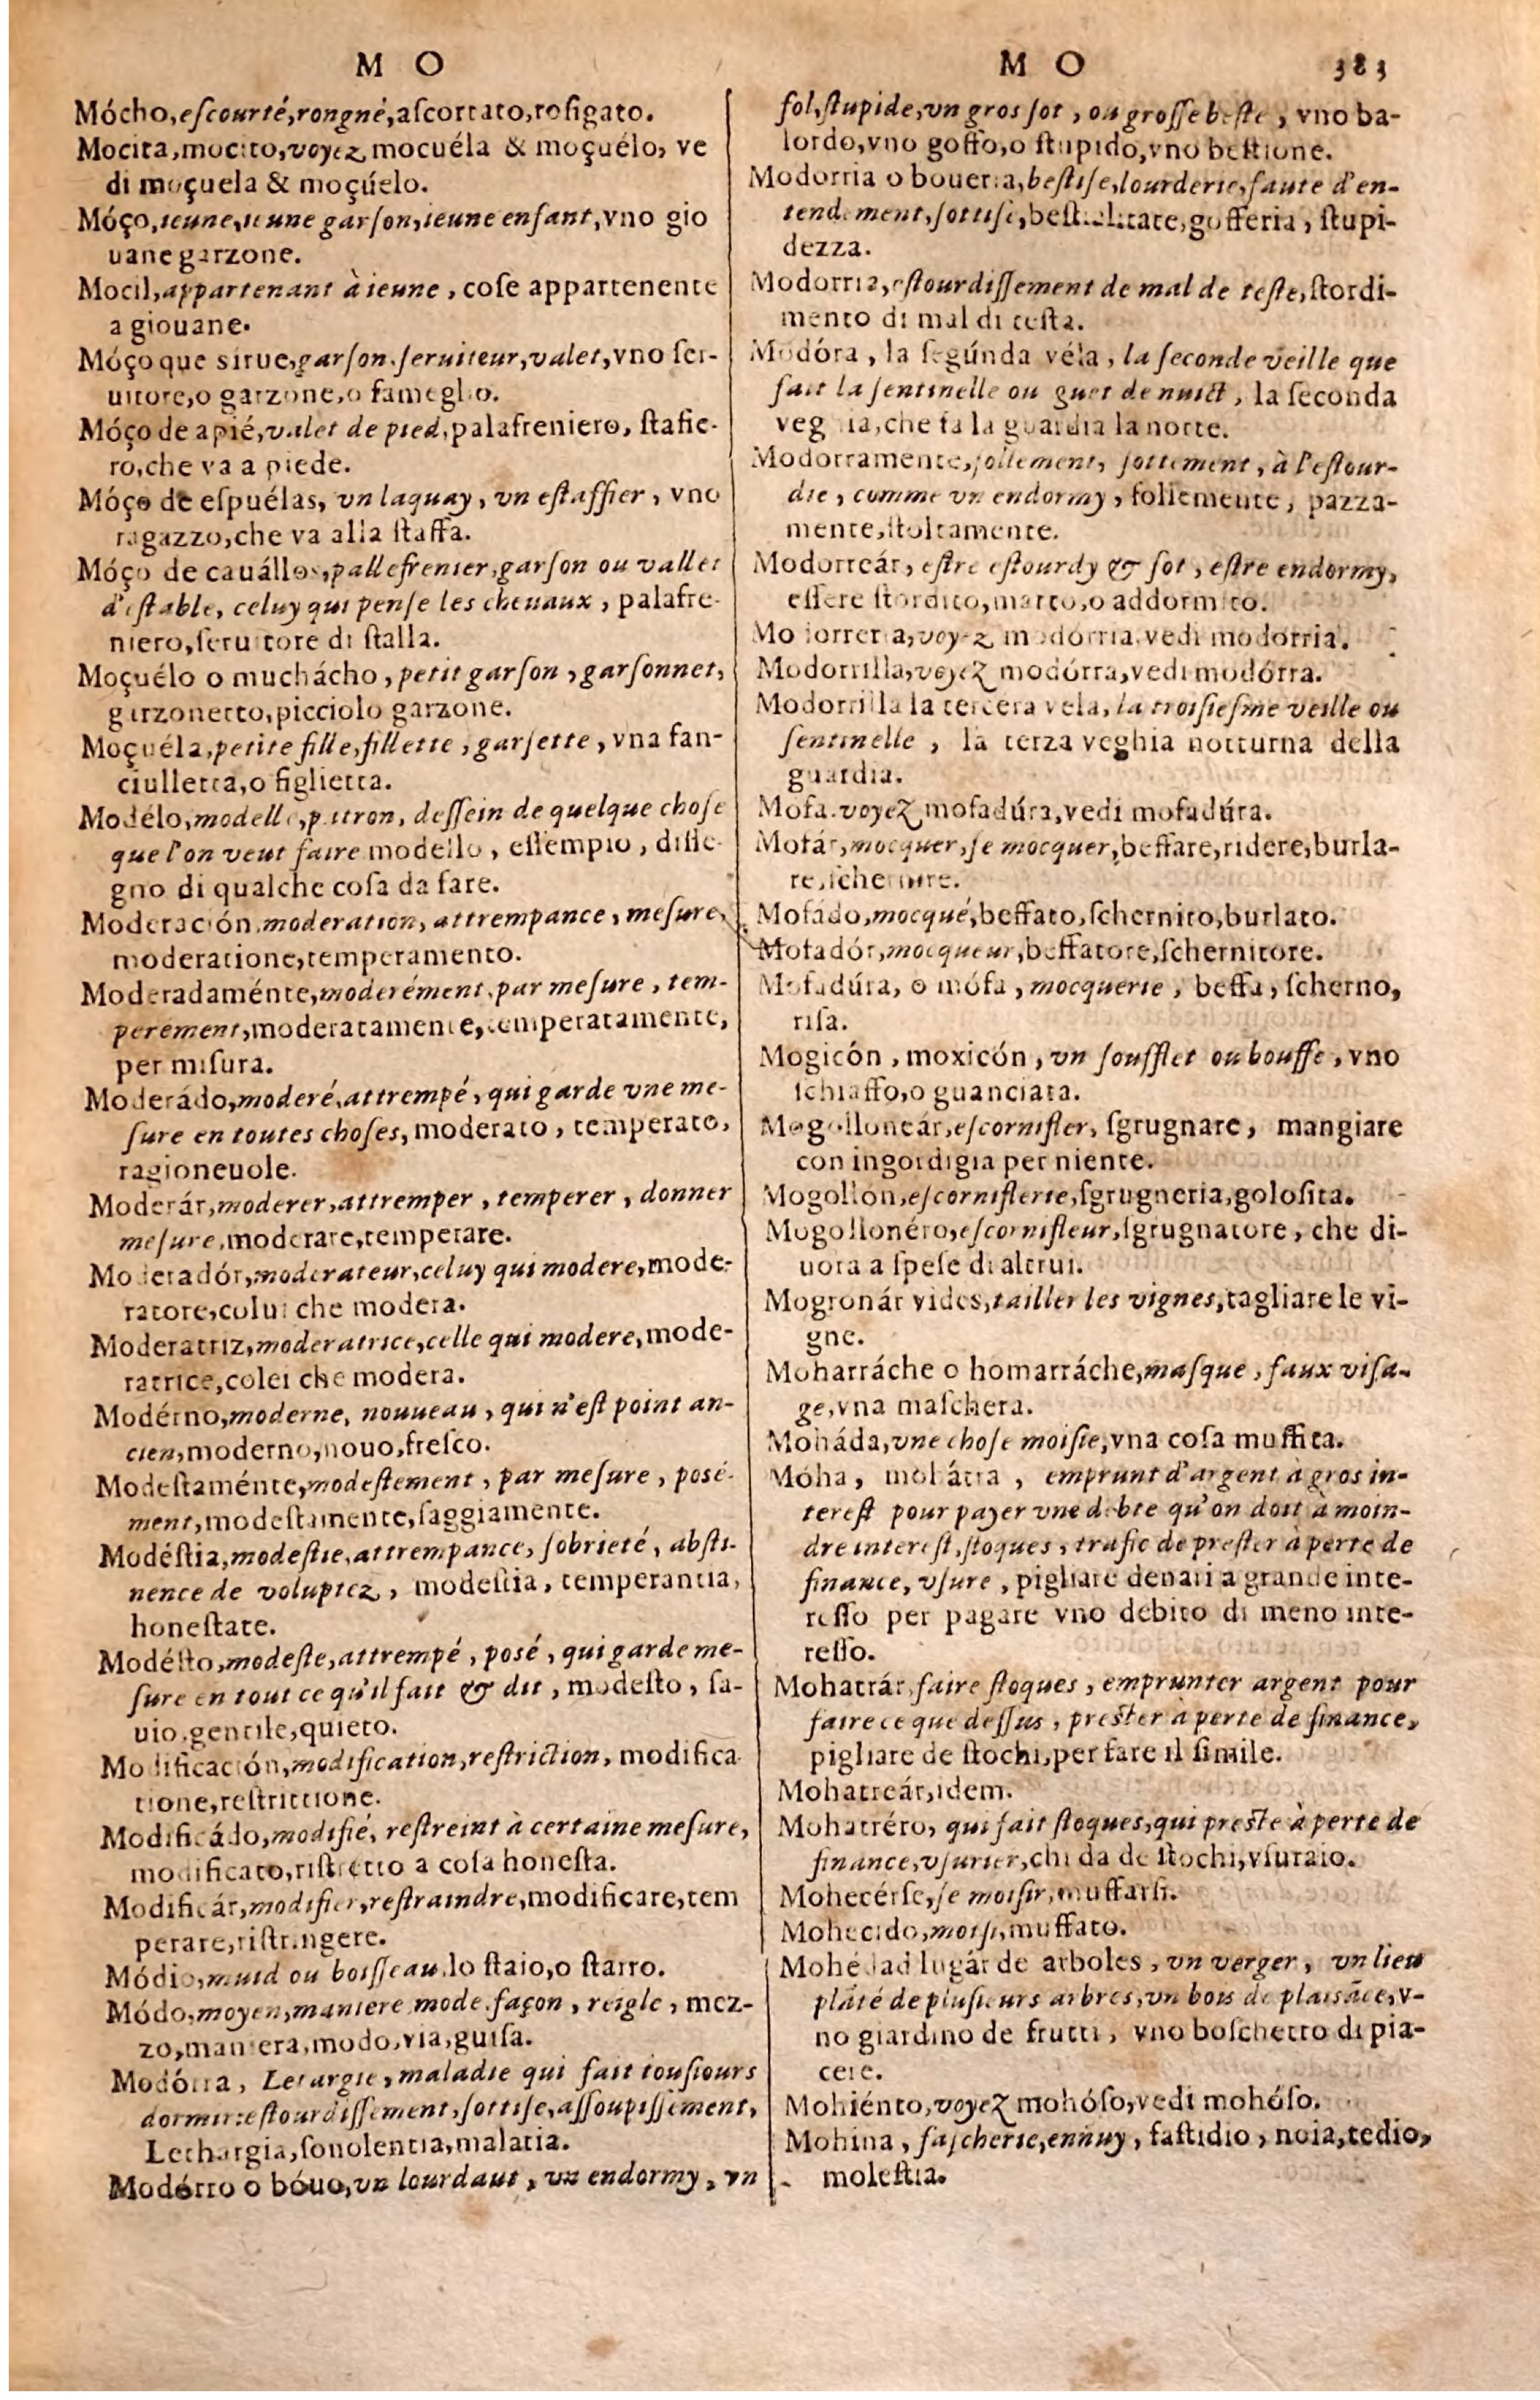 M O
Mócho, eſcourté, rongné, aſcortato, roſigato.
Mocita, mocito, voyez mocuéla & moçuélo, ve
di moçuela & moçúelo.
Móço, ieune, ieune garſon, ieune enfant, vno gio
uane garzone.
Mocil, appartenant à ieune, coſe appartenente
a giouane.
Móço que sirue, garſon. ſeruiteur, valet, vno ſer-
uitore, o garzone, o fameglio.
Móço de a pié, valet de pied, palafreniero, ſtafie-
ro, che va a piede.
Móço de eſpuélas, vn laquay, vn eſtaffier, vno
ragazzo, che va alla ſtaffa.
Móço de cauállos, pallefrenier, garſon ou vallet
d'eſtable, celuy qui penſe les cheuaux, palafre-
niero, ſeruitore di ſtalla.
Moçuélo o muchácho, petit garſon, garſonnet,
garzonetto, picciolo garzone.
Moçuéla, petite fille, fillette, garſette, vna fan-
ciulletta, o figlietta.
Modélo, modelle, patron, deſſein de quelque choſe
que l'on veut faire modello, eſſempio, diſſe-
gno di qualche coſa da fare.
Moderación, moderation, attrempance, meſure,
moderatione, temperamento.
Moderadaménte, moderément, par meſure, tem-
perément, moderatamente, temperatamente,
per miſura.
Moderádo, moderé, attrempé, qui garde vne me-
ſure en toutes choſes, moderato, temperato,
ragioneuole.
Moderár, moderer, attremper, temperer, donner
meſure, moderare, temperare.
Moderadór, moderateur, celuy qui modere, mode-
ratore, colui che modera.
Moderatriz, moderatrice, celle qui modere, mode-
ratrice, colei che modera.
Modérno, moderne, nouueau, qui n'eſt point an-
cien, moderno, nouo, freſco.
Modeſtaménte, modeſtement, par meſure, posé-
ment, modeſtamente, ſaggiamente.
Modéſtia, modeſtie, attrempance, ſobrieté, abſti-
nence de voluptez, modeſtia, temperantia,
honeſtate.
Modéſto, modeſte, attrempé, posé, qui garde me-
ſure en tout ce qu'il fait & dit, modeſto, ſa-
uio, gentile, quieto.
Modificación, modification, reſtriction, modifica
tione, reſtrittione.
Modificádo, modifié, reſtreint à certaine meſure,
modificato, riſtretto a coſa honeſta.
Modificár, modifier, reſtraindre, modificare, tem
perare, riſtringere.
Módio, muid ou boiſſeau, lo ſtaio, o ſtarro.
Módo, moyen, maniere mode façon, reigle, mez-
zo, maniera, modo, via, guiſa.
Modórra, Letargie, maladie qui fait touſiours
dormir: eſtourdiſſement, ſottiſe, aſſoupiſſement,
Lethargia, ſonolentia, malatia.
Modórro o bóuo, vn lourdaut, vn endormy, vn
M O 383
fol, ſtupide, vn gros ſot, ou groſſe beſte, vno ba-
lordo, vno goffo, o ſtupido, vno beſtione.
Modorria o boueria, beſtiſe, lourderie, faute d'en-
tendement, ſottiſe, beſtialitate, gofferia, ſtupi-
dezza.
Modorria, eſtourdiſſement de mal de teſte, ſtordi-
mento di mal di teſta.
Modóra, la ſegúnda véla, la ſeconde veille que
fait la ſentinelle ou guet de nuict, la ſeconda
veghia, che fa la guardia la notte.
Modorramente, follement, ſottement, à l'eſtour-
die, comme vn endormy, follemente, pazza-
mente, ſtoltamente.
Modorreár, eſtre eſtourdy & ſot, eſtre endormy,
eſſere ſtordito, matto, o addormito.
Modorreria, voyez modórria, vedi modorria.
Modorrilla, voyez modórra, vedi modórra.
Modorrilla la tercera vela, la troiſieſme veille ou
ſentinelle, la terza veghia notturna della
guardia.
Mofa. voyez mofadúra, vedi mofadúra.
Mofár, mocquer, ſe mocquer, beffare, ridere, burla-
re, ſchernire.
Mofádo, mocqué, beffato, ſchernito, burlato.
Mofadór, mocqueur, beffatore, ſchernitore.
Mofadúra, o mófa, mocquerie, beffa, ſcherno,
riſa.
Mogicón, moxicón, vn ſoufflet ou bouffe, vno
ſchiaffo, o guanciata.
Mogolloneár, eſcornifler, ſgrugnare, mangiare
con ingordigia per niente.
Mogollón, eſcorniflerie, ſgrugneria, goloſita.
Mogollonéro, eſcornifleur, ſgrugnatore, che di-
uora a ſpeſe di altrui.
Mogronár vides, tailler les vignes, tagliare le vi-
gne.
Moharráche o homarráche, maſque, faux viſa-
ge, vna maſchera.
Moháda, vne choſe moiſie, vna coſa muffita.
Móha, mohátra, emprunt d'argent à gros in-
tereſt pour payer vne debte qu'on doit à moin-
dre intereſt, ſtoques, trafic de preſter à perte de
finance, vſure, pigliare denari a grande inte-
reſſo per pagare vno debito di meno inte-
reſſo.
Mohatrár, faire ſtoques, emprunter argent pour
faire ce que deſſus, preſter à perte de finance,
pigliare de ſtochi, per fare il ſimile.
Mohatreár, idem.
Mohatréro, qui fait ſtoques, qui preſte à perte de
finance, vſurier, chi da de ſtochi, vſuraio.
Mohecérſe, ſe moiſir, muffarſi.
Mohecido, moiſi, muffato.
Mohédad lugár de arboles, vn verger, vn lieu
plāté de pluſieurs arbres, vn bois de plaisāce, v-
no giardino de frutti, vno boſchetto di pia-
cere.
Mohiénto, voyez mohóſo, vedi mohóſo.
Mohina, faſcherie, ennuy, faſtidio, noia, tedio,
moleſtia.